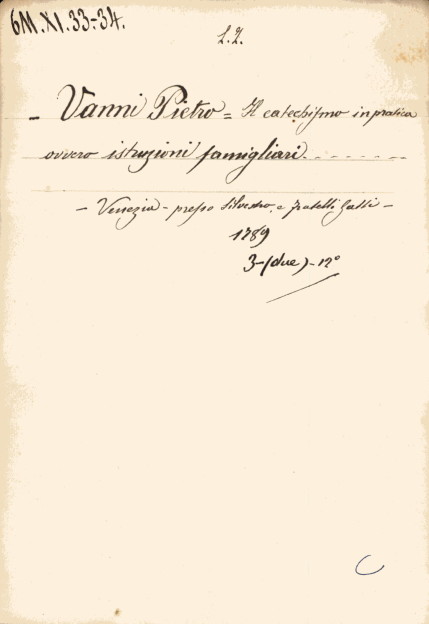 6M.XI.33-34.
L.2.
- Vanni Pietro = Il catechismo in pratica
ovvero istruzioni famigliari.........
- Venezia - presso Silvestro, e fratelli Gatti -
1789
3-(due)-12°
C